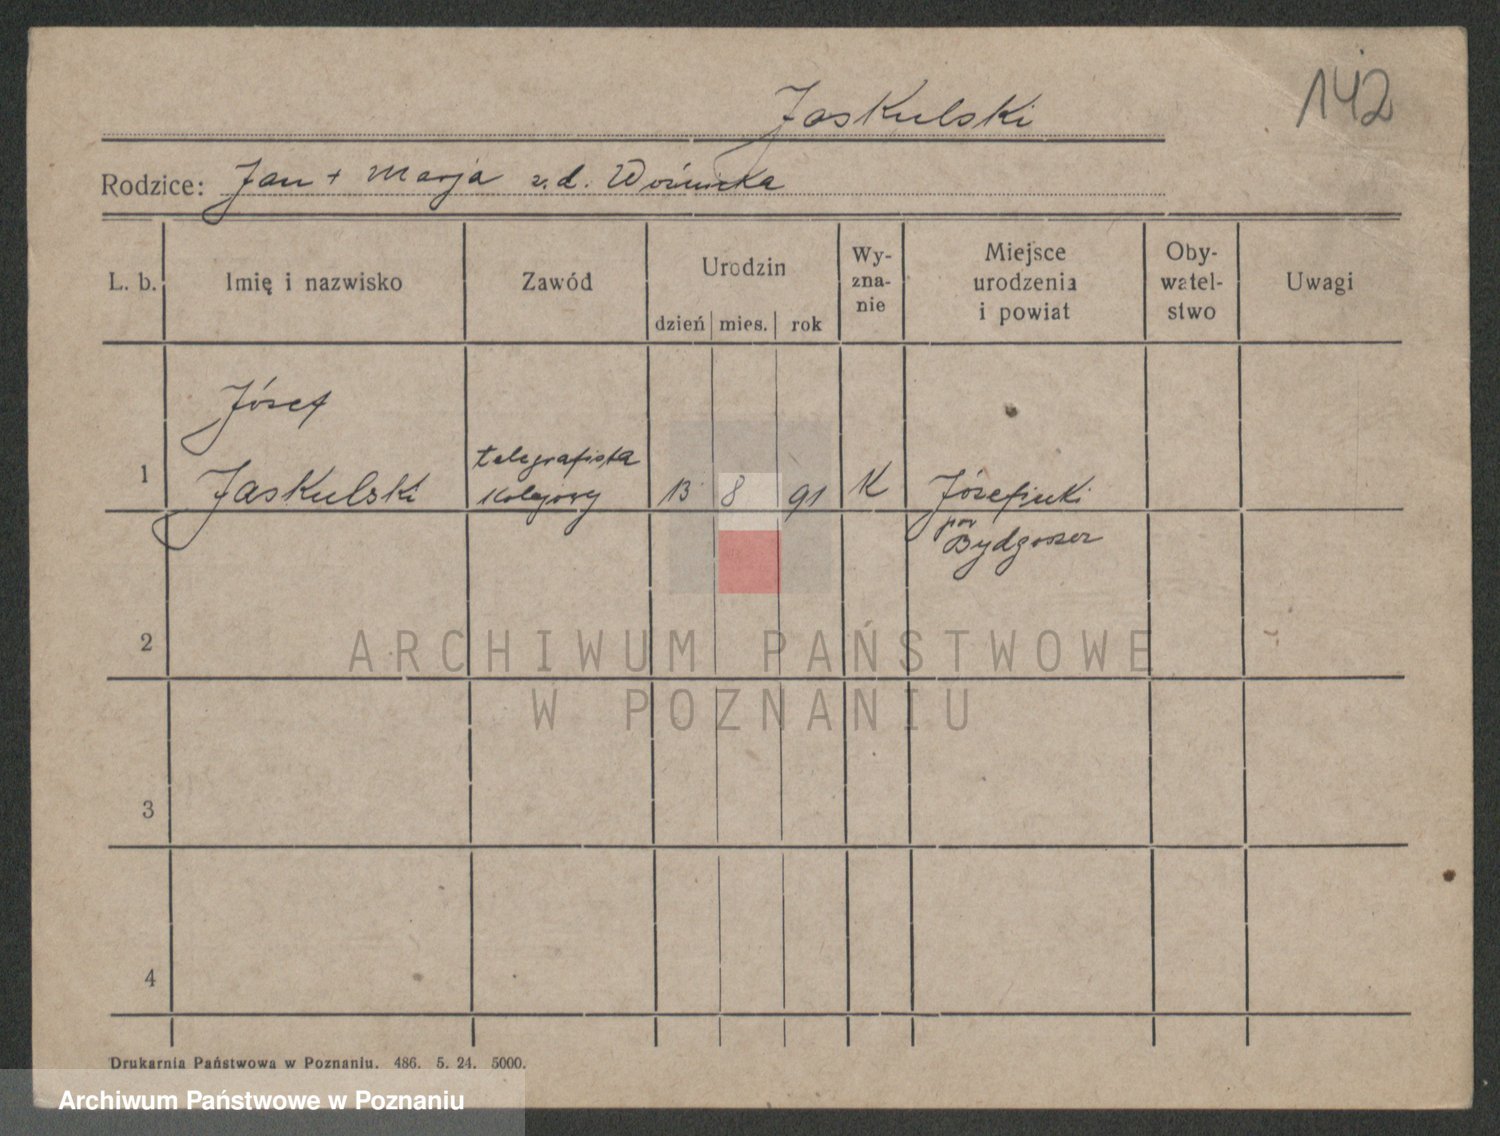 142
Jaskulski
Rodzice: Jan + Marja z.d. Woźnicka
L. b. Imię i nazwisko Zawód Urodzin Wy-zna-nie Miejsce urodzenia i powiat Oby-watel-stwo Uwagi
dzień mies. rok
Józef
1 Jaskulski telegrafista kolejowy 13 8 91 K Józefinki
pow Bydgoszcz
2
ARCHIWUM PAŃSTWOWE
W POZNANIU
3
4
Drukarnia Państwowa w Poznaniu. 486. 5. 24. 5000.
Archiwum Państwowe w Poznaniu